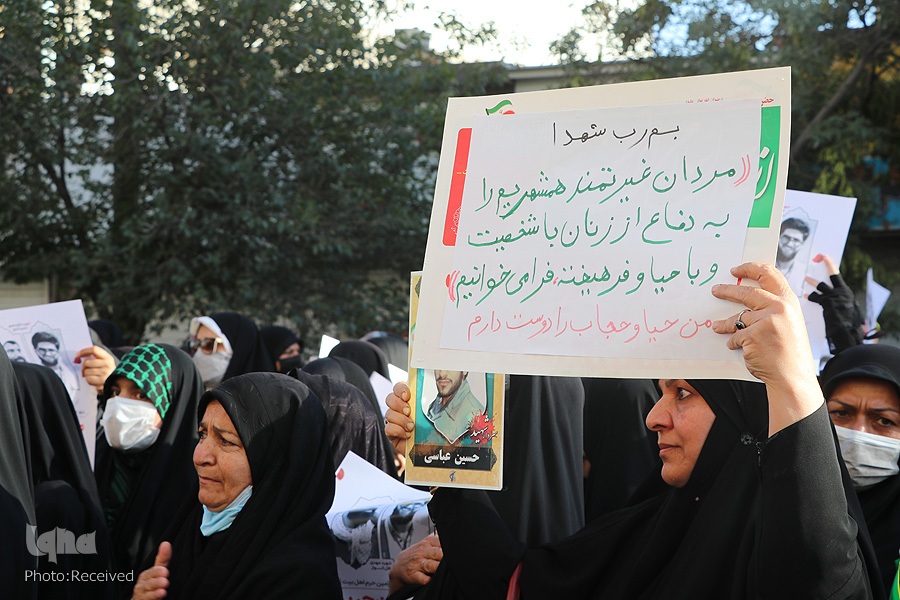 بسم رب شهدا
«مردان غیرتمند همشهریم را
به دفاع از زنان با شخصیت
و با حیا و فرهیخته فرامی‌خوانیم»
من حیا و حجاب را دوست دارم
شهید
حسین عباسی
iqna
Photo:Received